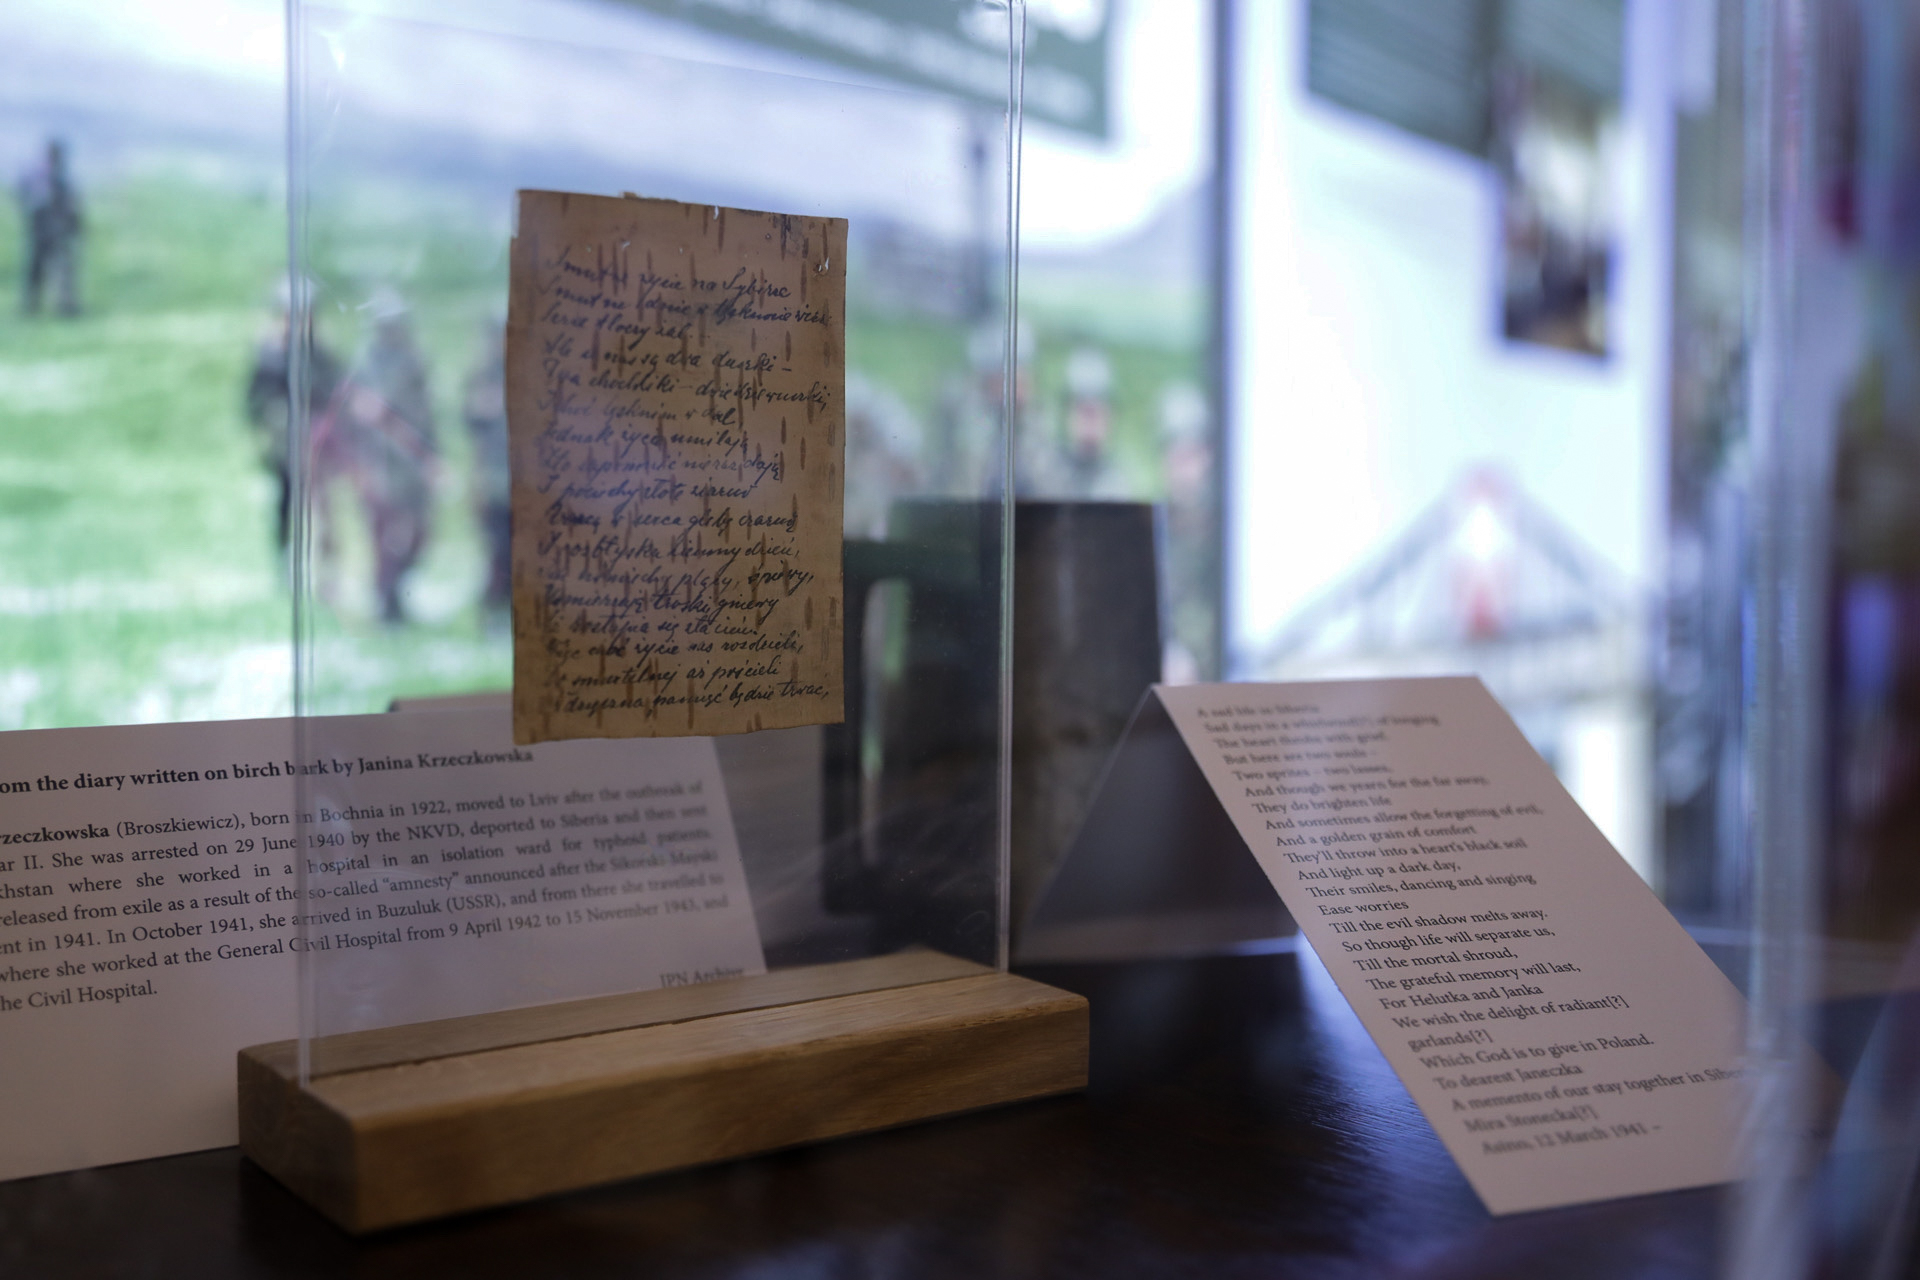 Smutne życie na Sybirze
Smutne dnie w tęsknocie
Serce tłoczy żal..
są dwa duszki -
Dwa chochliki - dwie dziewuszki,
I choć tęsknim w dal
Jednak życie umilają
Zło zapomnieć nieraz dają
I pociechy złote ziarno
Rzucą w serca glebę czarną
I rozbłyska ciemny dzień,
uśmiechy pląsy, śpiewy,
Uśmierzają troski, gniewy
się zła cień.
życie nas rozdzieli,
śmiertelnej aż pościeli
pamięć będzie trwać,
om the diary written on birch bark by Janina Krzeczkowska
rzeczkowska (Broszkiewicz), born in Bochnia in 1922, moved to Lviv after the outbreak of
ar II. She was arrested on 29 June 1940 by the NKVD, deported to Siberia and then sent
khstan where she worked in a hospital in an isolation ward for typhoid patients.
released from exile as a result of the so-called “amnesty” announced after the Sikorski-Mayski
ent in 1941. In October 1941, she arrived in Buzuluk (USSR), and from there she travelled to
where she worked at the General Civil Hospital from 9 April 1942 to 15 November 1943, and
he Civil Hospital.
IPN Archive
A sad life in Siberia
Sad days in a whirlwind[?] of longing
The heart throbs with grief.
But here are two souls –
Two sprites – two lasses,
And though we yearn for the far away,
They do brighten life
And sometimes allow the forgetting of evil,
And a golden grain of comfort
They'll throw into a heart's black soil
And light up a dark day,
Their smiles, dancing and singing
Ease worries
Till the evil shadow melts away.
So though life will separate us,
Till the mortal shroud,
The grateful memory will last,
For Helutka and Janka
We wish the delight of radiant[?]
garlands[?]
Which God is to give in Poland.
To dearest Janeczka
A memento of our stay together in Siberia
Mira Stonecka[?]
Asino, 12 March 1941 –